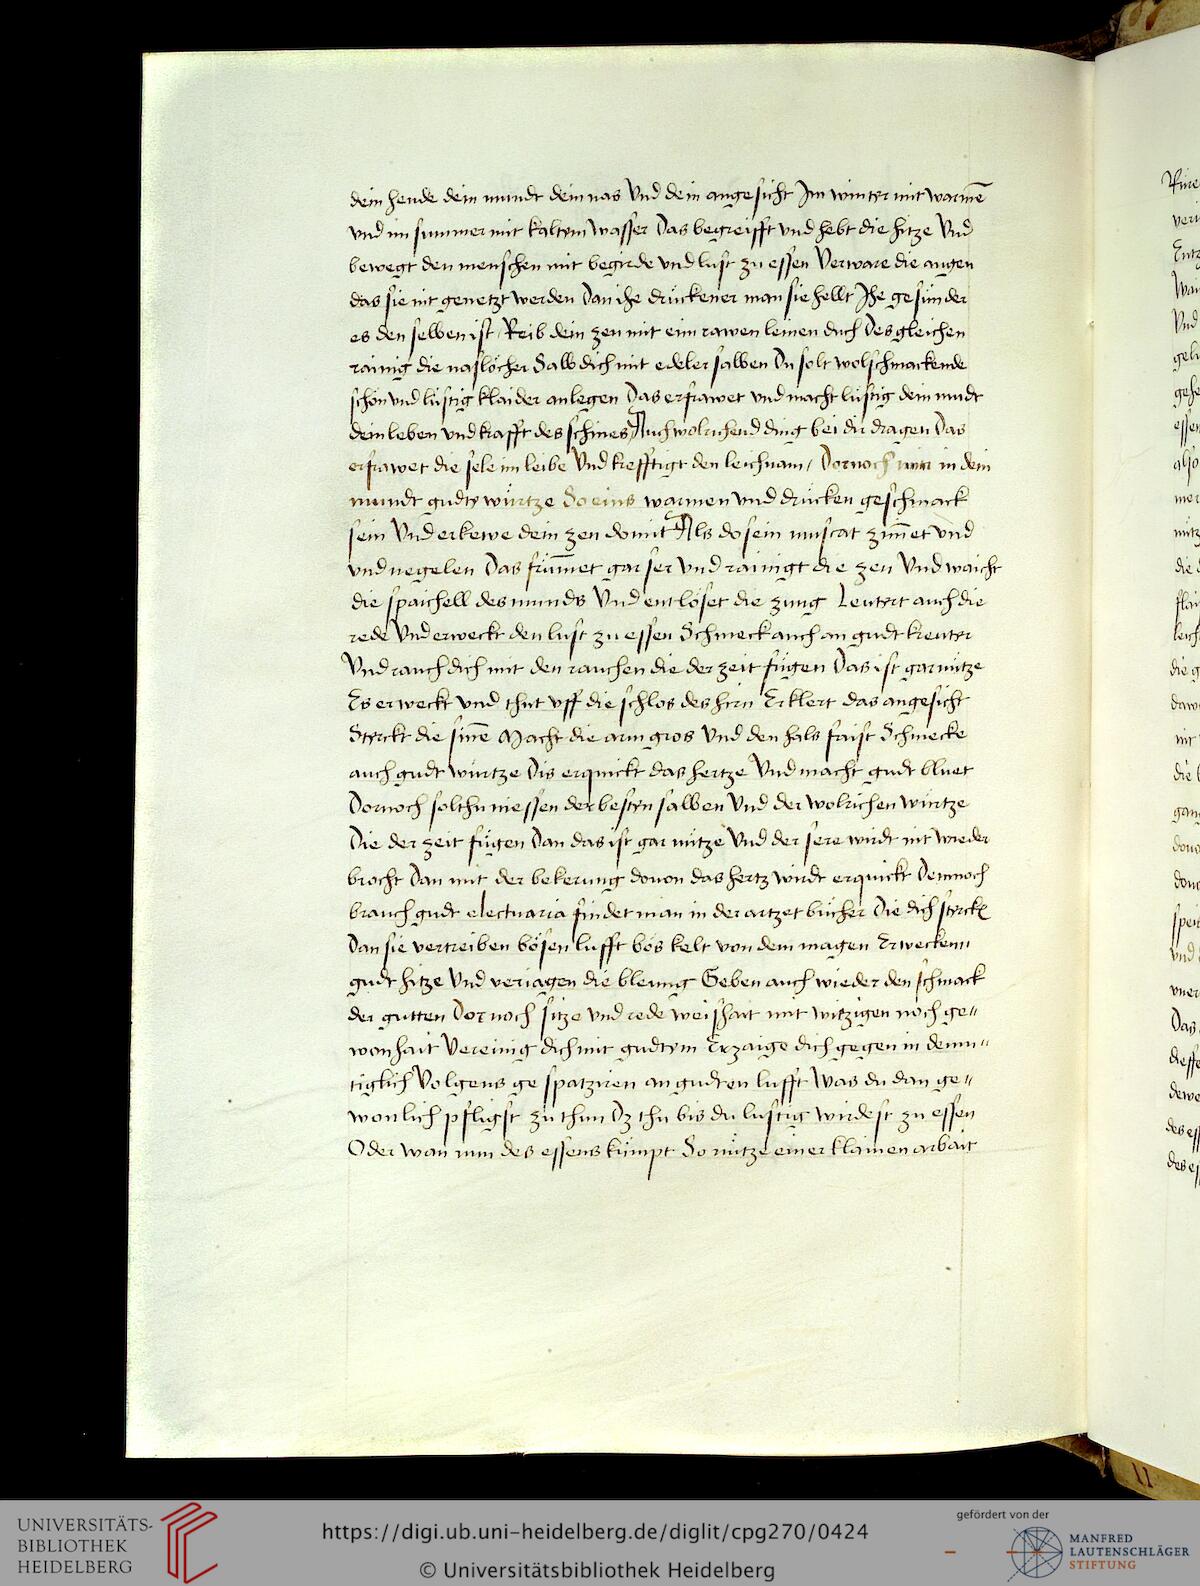 dein hende dein mundt dein nas Vnd dein angesicht Im winter mit warmē
vnd im summer mit kaltem wasser Das begreifft vnd hebt die hitze Vnd
bewegt den menschen mit begirde vnd lust zu essen Verware die augen
das sie nit genetzt werden Dan ihe druckener man sie hellt Ihe gesünder
es den selben ist / Reib dein zen mit eim rawen leinen duch Desgleichen
rainig die naslöcher Salb dich mit edeler salben Du solt wolschmackende
schön vnd lüstig klaider anlegen Das erfrawet vnd macht lüstig dein mudt
dein leben vnd krafft des schines Auch wolrichend ding bei dir dragen Das
erfrawet die sele im leibe Vnd krefftigt den leichnam / Dornoch nim in dein
mundt gudte würtze So eins warmen vnd drucken geschmack
sein Vnd erkewe dein zen domit Als do sein muscat zim̄et vnd
vnd negelen Das frum̄et gar ser vnd rainigt die zen Vnd waicht
die spaichell des munds Vnd entlöset die zung Leutert auch die
rede Vnd erweckt den lust zu essen Schmeck auch an gudt kreuter
Vnd rauch dich mit den rauchen die der zeit fügen Das ist gar nütze
Es erweckt vnd thut vff die schlos des hirn Erklert das angesicht
Sterckt die sin̄e Macht die arm gros Vnd den hals faist Schmecke
auch gudt würtze Dis erquickt das hertze Vnd macht gudt bluet
Dornoch solthu niessen der besten salben Vnd der wolrichen würtze
Die der zeit fügen Dan das ist gar nütze Vnd der sere wirdt nit wieder
brocht Dan mit der bekerung douon das hertz wirdt erquickt Dennoch
brauch gudt electuaria findet man in der artzet bücher Die dich sterckē
Dan sie vertreiben bösen lufft bös kelt von dem magen Erwecken
gudt hitze Vnd veriagen die bleung Geben auch wieder den schmack
der gutten Dornoch sitze vnd rede weishait mit witzigen noch ge⸗
wonhait Vereinig dich mit gudtem Erzaige dich gegen in demu⸗
tiglich Volgens ge spatziren an gudten lufft Was du dan ge⸗
wonlich pfligst zu thun Dz thu bis du lustig wirdest zu essen
Oder wan nun des essens kümpt So nütze einer klainen arbait
UNIVERSITÄTS-
BIBLIOTHEK
HEIDELBERG
https://digi.ub.uni-heidelberg.de/diglit/cpg270/0424
© Universitätsbibliothek Heidelberg
gefördert von der
MANFRED
LAUTENSCHLÄGER
STIFTUNG